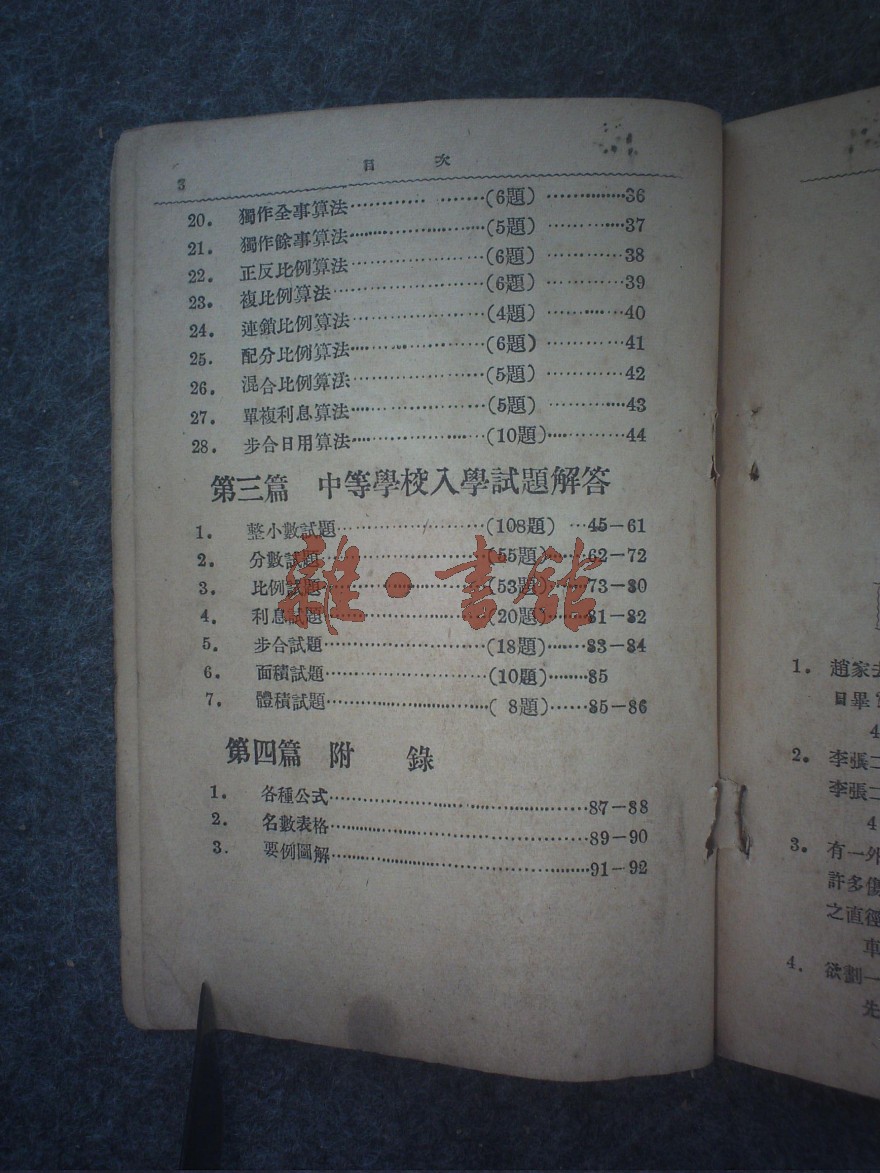 3 目次
20. 獨作全事算法…………(6題)…………36
21. 獨作餘事算法…………(5題)…………37
22. 正反比例算法…………(6題)…………38
23. 複比例算法…………(6題)…………39
24. 連鎖比例算法…………(4題)…………40
25. 配分比例算法…………(6題)…………41
26. 混合比例算法…………(5題)…………42
27. 單複利息算法…………(5題)…………43
28. 步合日用算法…………(10題)…………44
第三篇 中等學校入學試題解答
1. 整小數試題…………(108題)…45-61
2. 分數試題…………(55題)……62-72
3. 比例試題…………(53題)……73-80
4. 利息試題…………(20題)……81-82
5. 步合試題…………(18題)……83-84
6. 面積試題…………(10題)……85
7. 體積試題…………( 8題)……85-86
第四篇 附錄
1. 各種公式…………87-88
2. 名數表格…………89-90
3. 要例圖解…………91-92
雜·書館
1. 趙家
目畢
4
2. 李張二
李張二
4
3. 有一外
許多
之直徑
車
4. 欲劃一
先